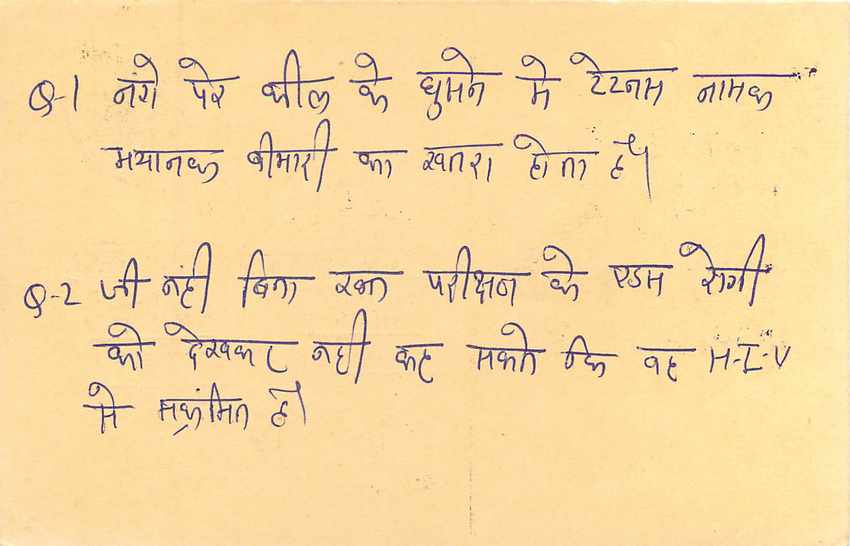 Q-1 नंगे पेर कील के घुमने मे टेटनस नामक
भयानक बीमारी का खतरा होता है।
Q-2 जी नहीं बिना रक्त परीक्षण के एडस रोगी
को देखकर नही कह सकते कि वह H-I-V
से सक्रंमित है।